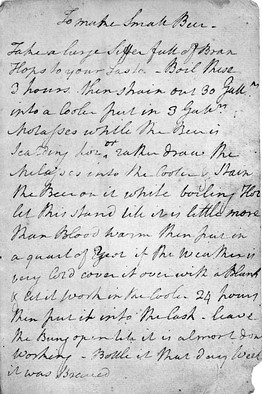 To make Small Beer —
Take a large Siffer full of Bran
Hops to your Taste — Boil these
3 hours. then strain out 30 Galln
into a Cooler put in 3 Galln
Molasses while the Beer is
Scalding hot or rather draw the
Molasses into the Cooler & Strain
the Beer on it while boiling Hot
let this stand till it is little more
than Blood warm then put in
a quart of Yest if the Weather is
very Cold cover it over with a Blank
& let it work in the Cooler 24 hours
then put it into the Cask — leave
the Bung open till it is almost don
Working — Bottle it that day Week
it was Brewed